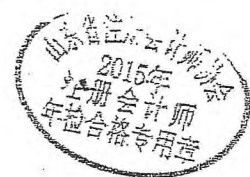 山东省注册会计师协会
2015年
注册会计师
年检合格专用章